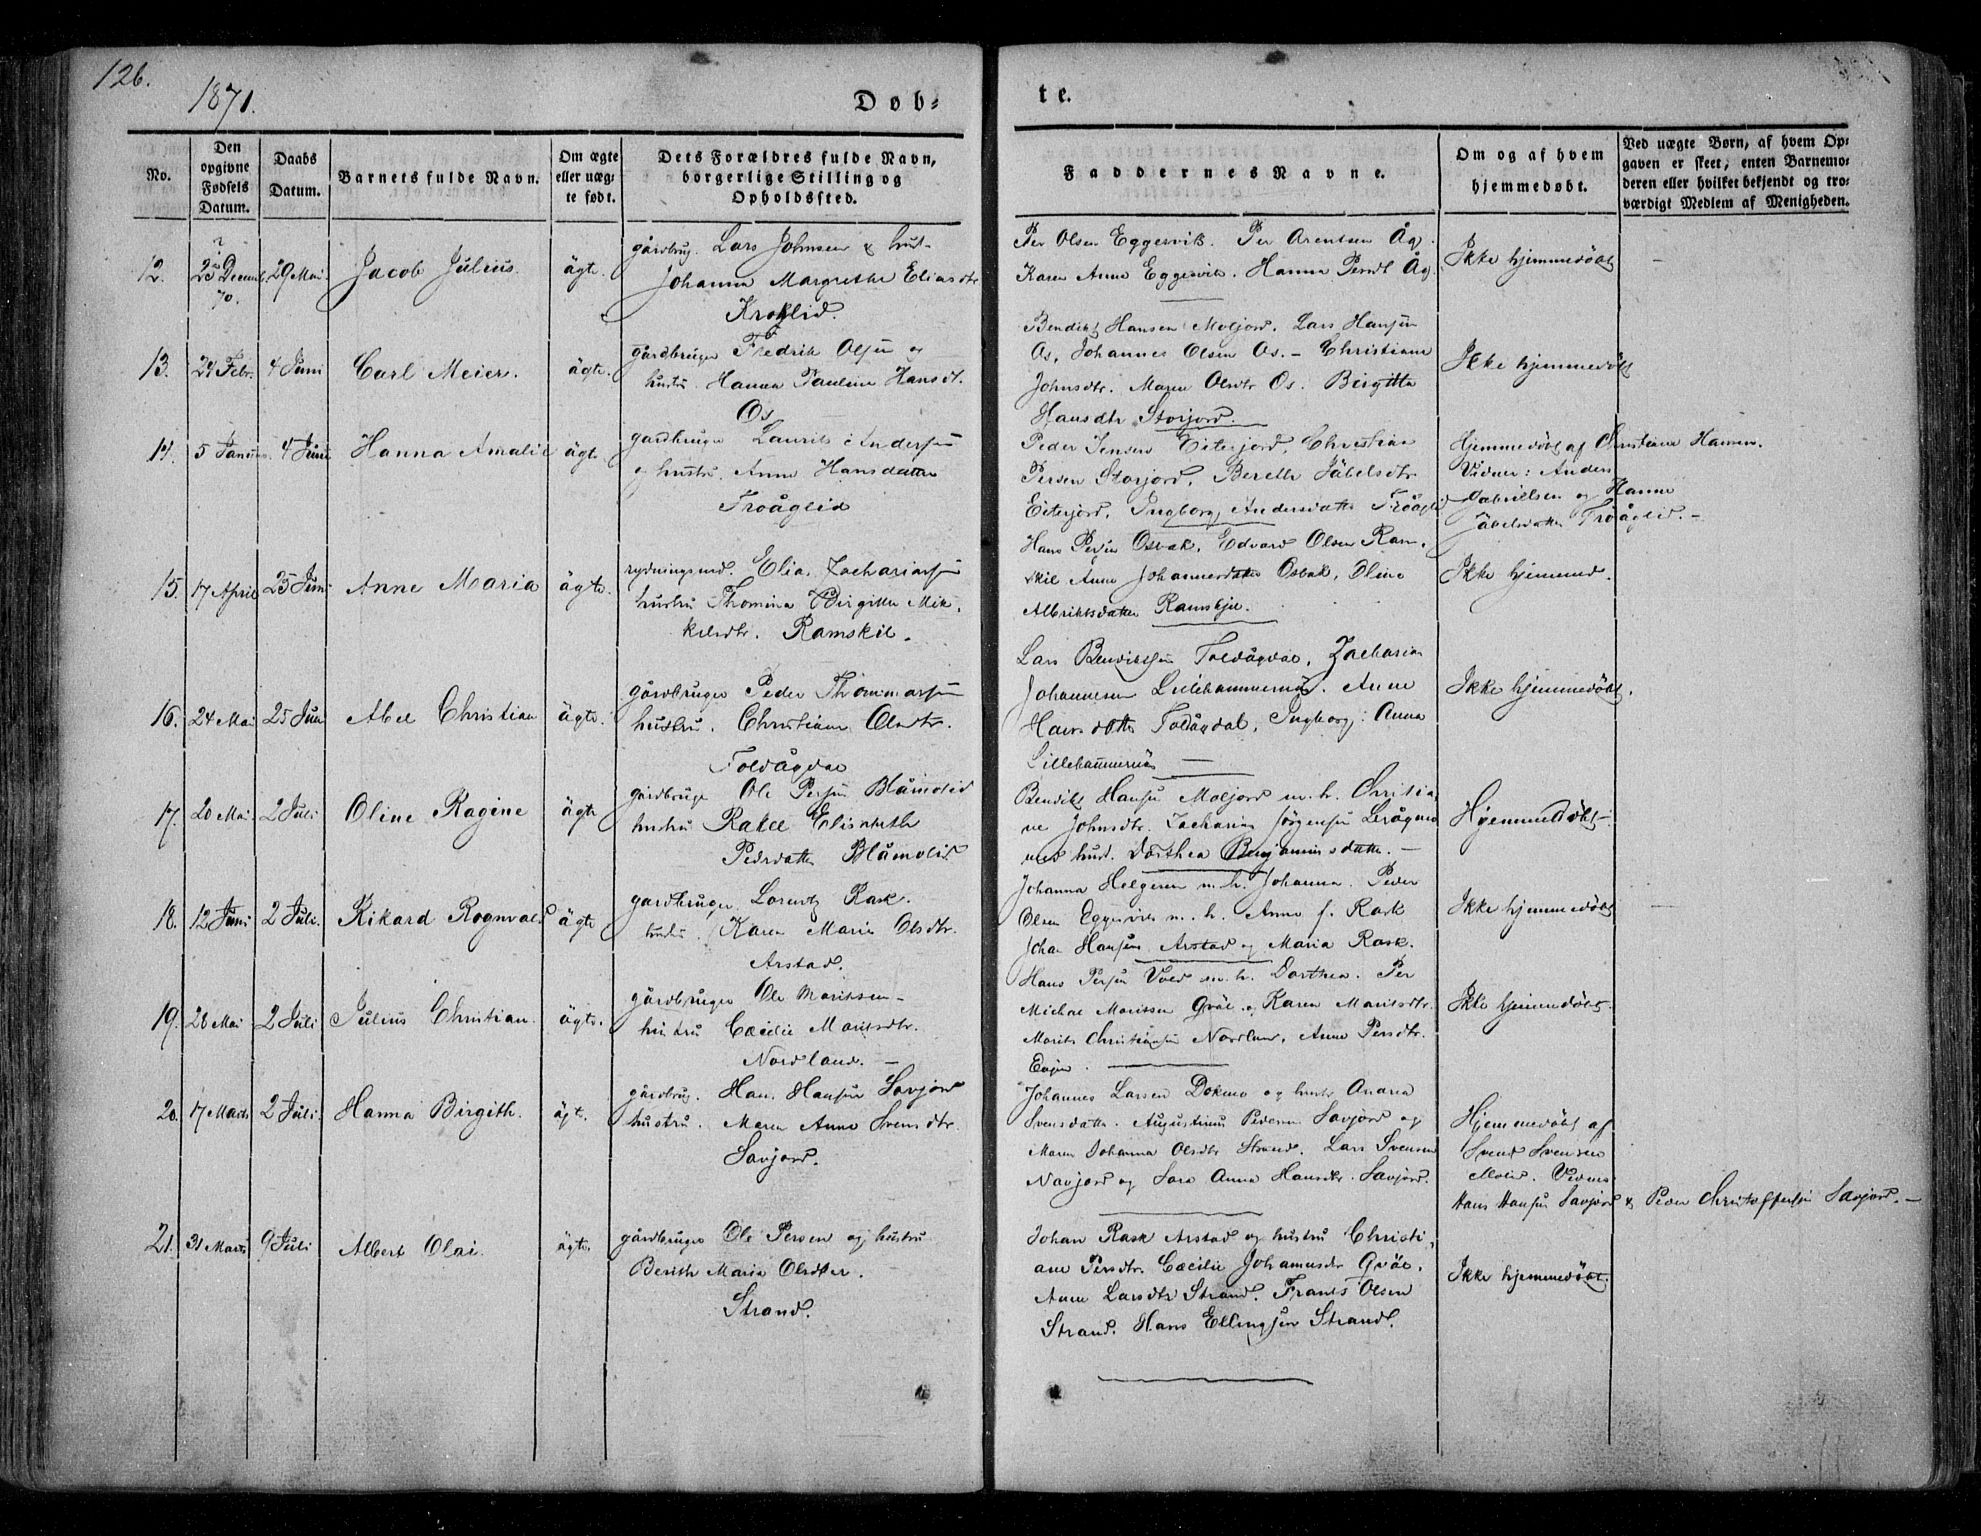 126.
1871.
Døb-
te.
No.
Den opgivne Fødsels Datum.
Daabs Datum.
Barnets fulde Navn.
Om ægte eller uægte født.
Dets Forældres fulde Navn, borgerlige Stilling og Opholdssted.
Faddernes Navne.
Om og af hvem hjemmedøbt.
Ved uægte Børn, af hvem Opgaven er skeet, enten Barnemoderen eller hvilket bekjendt og troværdigt Medlem af Menigheden.
12. Decemb. 70. 29 Mai Jacob Julius. ägte.
gårdbrug. Lars Johnsen & hust.
Johanna Margrethe Eliasdtr
Kroklid.
Per Olsen Eggesvik. Per Arentsen Åg.
Karen Anne Eggesvik. Hanna Persdt Åg.
Ikke hjemmedöbt
13. 24 Febr. 4 Juni Carl Meier. ägte.
gårdbruger Fredrik Olsen og
hustru. Hanna Pauline Hansdt.
Os
Bendikt Hansen Moljord. Lars Hansen
Os, Johannes Olsen Os. - Christiane
Johnsdtr. Maren Olsdtr Os. Birgitte
Hansdtr Storjord.
Ikke hjemmedöbt
14. 5 Januar 4 Juni Hanna Amalie ägte.
gardbruger Laurits Andersen
og hustru. Anne Hansdatter
Troåglid
Peder Jensen Eiterjord, Christian
Persen Storjord, Berethe Jäbelsdtr.
Eiterjord, Ingborg Andersdatter Troåglid
Hjemmedöbt af Christiane Hansen.
Vidner: Anders
Gabrielsen og Hanne
Jäbelsdatter Troåglid. -
15. 17 April 25 Juni Anne Maria ägte.
rydningsmd. Elias Zachariassen
hustru Thomina Birgitte Mik-
kelsdtr. Ramskil.
Hans Persen Osbak, Edvard Olsen Ram-
skil Anne Johannesdatter Osbak, Oline
Albriktsdatter Ramskjel.
Ikke hjemmed.
16. 24 Mai 25 Juni Abel Christian ägte.
gårdbruger Peder Thommassen
hustru. Christiane Olsdtr.
Toldågdal
Lars Bendiktsen Toldågdal, Zacharias
Johannesen Lillehammernäs. Anne
Hansdatter Toldågdal, Ingborg Anna
Lillehammernäs
Ikke hjemmedöbt.
17. 20 Mai. 2 Juli Oline Ragine ägte
gårdbruger Ole Persen Blåmolid
hustru Rakel Elisabeth
Pedersdatter Blåmolid
Bendikt Hansen Moljord m. h. Christia-
ne Johnsdtr. Zacharias Jörgensen Leråg
med hust. Dorthea Benjaminsdatter. -
Hjemmedöbt -
18. 12 Juni 2 Juli. Rikard Rognvald ägte
gardbruger Lorentz Rask.
hustru. Karen Marie Olsdtr.
Arstad.
Johannes Helgesen m. h. Johanna. Peder
Olsen Eggesvik m. h. Anne f. Rask
Johan Hansen Arstad og Maria Rask.
Ikke hjemmedöbt
19. 26 Mai 2 Juli Julius Christian. ägte.
gårdbruger Ole Moritsen -
hustru Cæcilie Moritsdtr.
Nordland. -
Hans Persen Vold m. h. Dorthea. Per
Michael Moritsen Qväl og Karen Moritsdtr.
Morits Christiansen Nordland, Anne Persdtr.
Evjen.
Ikke hjemmedöbt.
20. 17 Marts 2 Juli. Hanna Birgith. ägt.
gårdbrug. Hans Hansen Savjord
hustru. Maren Anne Svensdtr.
Savjord.
Johannes Larsen Dokmo og hustr. Anana
Svensdatter. Augustinus Pedersen Savjord og
Maren Johanna Olsdtr Strand. Lars Svensen
Navjord og Sara Anna Hansdtr. Savjord.
Hjemmedöbt af
Svend Svensen
Molid. Vidner
Hans Hansen Savjord & Peder Christoffersen Savjord. -
21. 31 Marts 9 Juli Albert Olai. ägte.
gårdbruger Ole Persen og hustru
Berith Maria Olsdter.
Strand.
Johan Rask Arstad og hustru Christi-
ane Persdtr. Cæcilie Johannesdtr Qväl.
Anne Larsdtr Strand. Frants Olsen
Strand. Hans Ellingsen Strand.
Ikke hjemmedöbt.